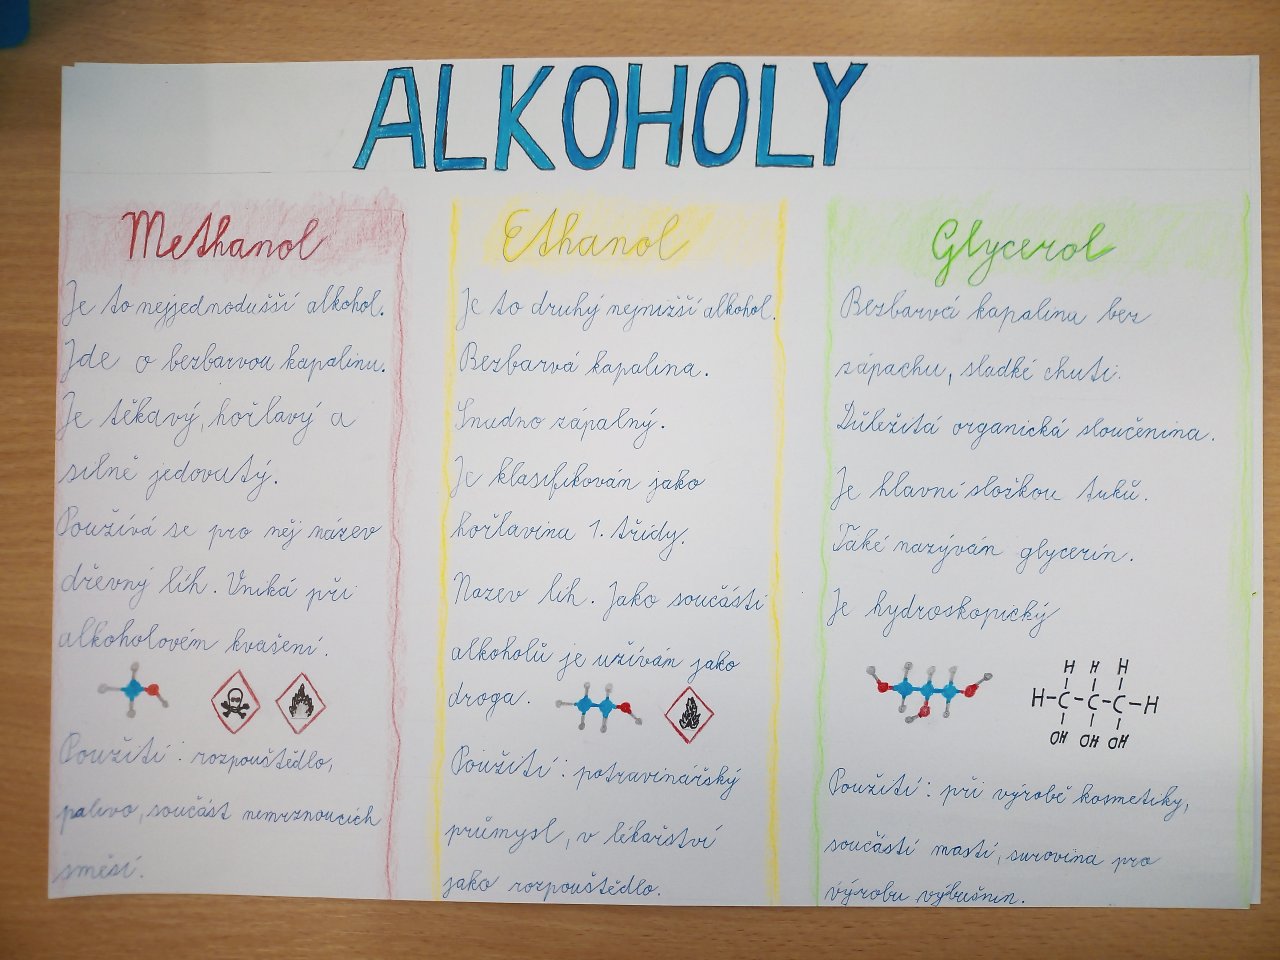 ALKOHOLY
Methanol
Je to nejjednodušší alkohol.
Jde o bezbarvou kapalinu.
Je těkavý, hořlavý a
silně jedovatý.
Používá se pro něj název
dřevný líh. Vniká při
alkoholovém kvašení.
Použití: rozpouštědlo,
palivo, součást nemrznoucích
směsí.
Ethanol
Je to druhý nejnižší alkohol.
Bezbarvá kapalina.
Snadno zápalný.
Je klasifikován jako
hořlavina 1. třídy.
Nazev líh. Jako součásti
alkoholů je užíván jako
droga.
Použití: potravinářský
průmysl, v lékařství
jako rozpouštědlo.
Glycerol
Bezbarvá kapalina bez
zápachu, sladké chuti.
Důležitá organická sloučenina.
Je hlavní složkou tuků.
Také nazýván glycerín.
Je hydroskopický
H H H
H-C-C-C-H
OH OH OH
Použití: při výrobě kosmetiky,
součástí mastí, surovina pro
výrobu výbušnin.